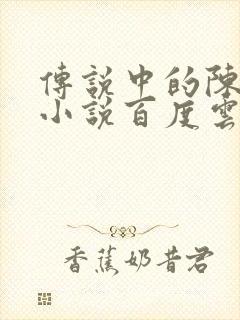 傳說中的陳
小說百度雲
香蕉奶昔君